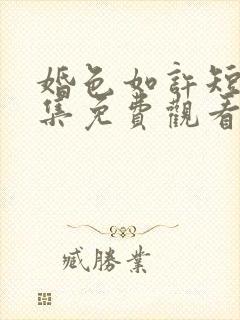 婚色如許短
集免費觀看
臧勝業